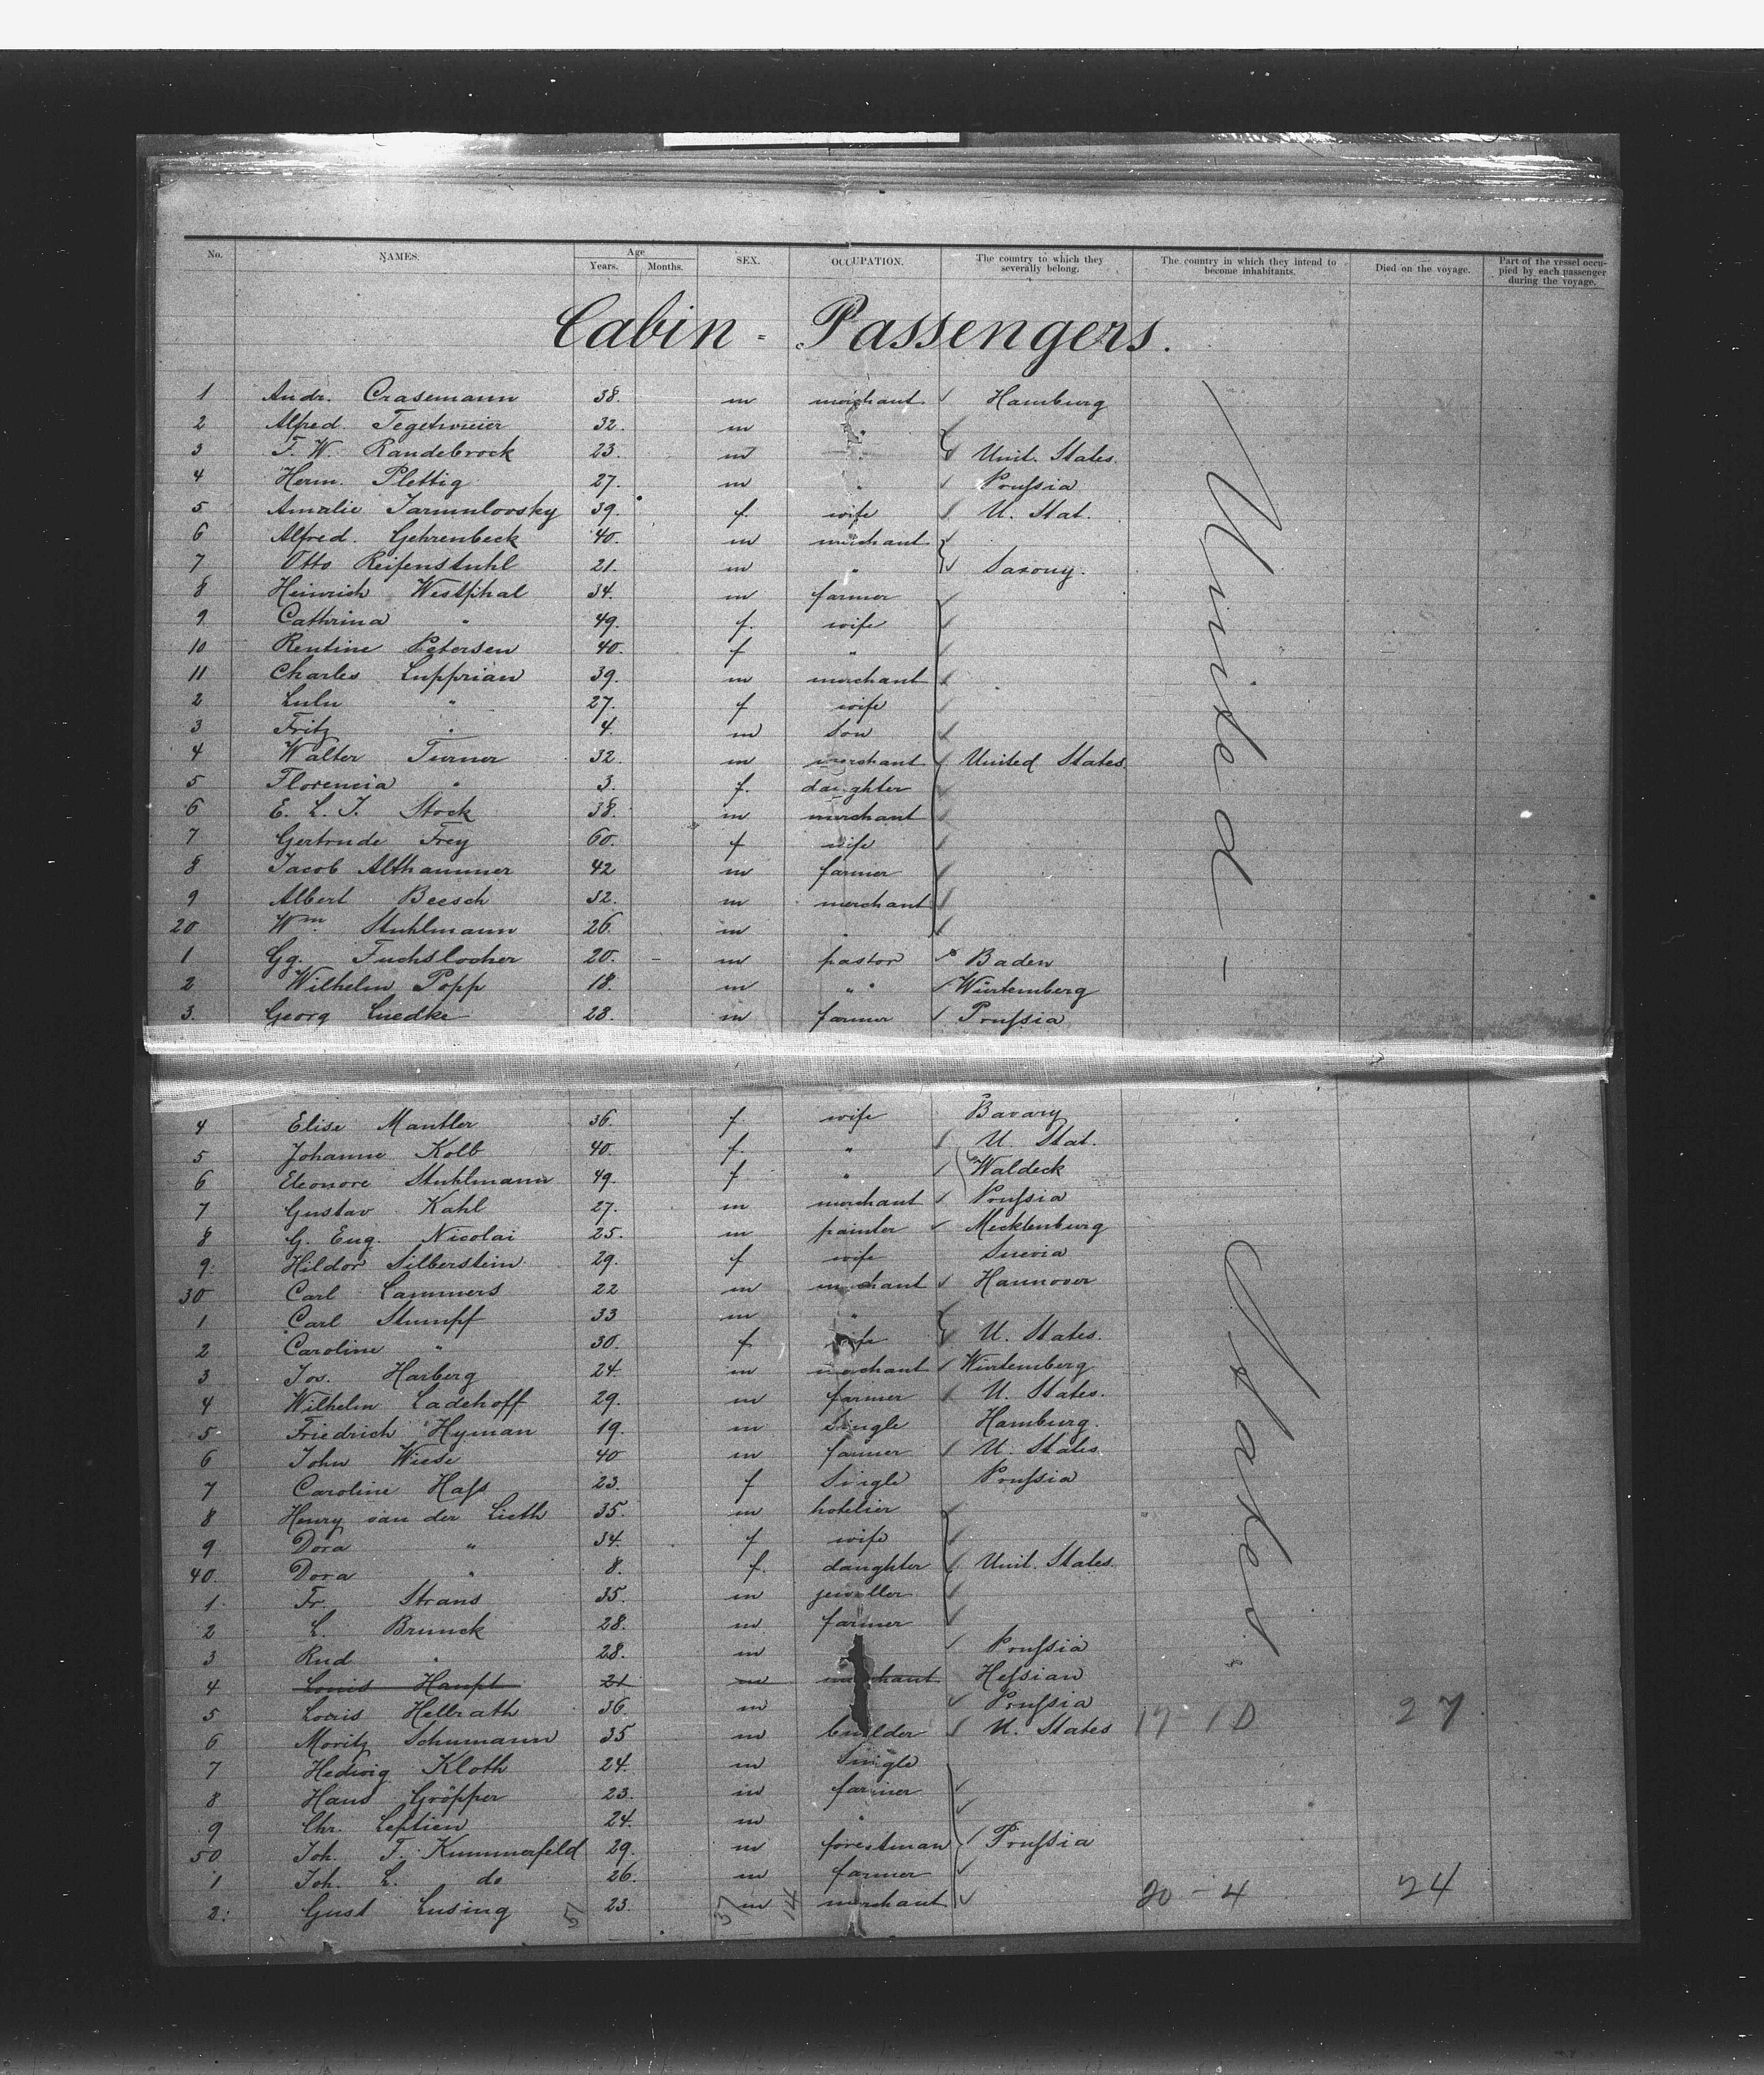 No. NAMES. Age Years. Months. SEX. OCCUPATION. The country to which they severally belong. The country in which they intend to become inhabitants. Died on the voyage. Part of the vessel occupied by each passenger during the voyage.
Cabin - Passengers.
1 Andr. Crasemann 38. m merchant Hamburg
2 Alfred. Tegetmeier 32. m "
3 F. W. Randebrock 23. m " Unit. States.
4 Herm. Plettig 27. m " Prußia
5 Amalie Jarmulovsky 39. f. wife U. Stat.
6 Alfred. Gehrenbeck 40. m merchant
7 Otto Reifenstuhl 21. m " Saxony.
8 Heinrich Westphal 34. m farmer
9 Cathrina " 49. f. wife
10 Rentine Petersen 40. f "
11 Charles Lupprian 39. m merchant
2 Lulu " 27. f wife
3 Fritz " 4. m Son
4 Walter Turner 32. m merchant United States.
5 Florencia " 3. f. daughter
6 E. L. T. Stock 38. m merchant
7 Gertrude Frey 60. f wife
8 Jacob Althammer 42 m farmer
9 Albert Beesch 32. m merchant
20 Wm. Stuhlmann 26. m "
1 Gg. Fuchslocher 20. m pastor Baden
2 Wilhelm Popp 18. m " " Würtemberg
3. Georg Luedke 28. m farmer Prußia
United -
4 Elise Mantler 36. f. wife Bavary
5 Johanne Kolb 40. f. " U. Stat.
6 Eleonore Stuhlmann 49. f " Waldeck
7 Gustav Kahl 27. m merchant Prußia
8 G. Eug. Nicolai 25. m painter Mecklenburg
9. Hildor Silberstein 29. f wife Suevia
30 Carl Lammers 22 m merchant Hannover
1 Carl Stumpf 33 m "
2 Caroline " 30. f wife U. States.
3 Jos. Harberg 24. m merchant Würtemberg
4 Wilhelm Ladehoff 29. m farmer U. States.
5 Friedrich Hyman 19. m Single Hamburg.
6 John Wiese 40 m farmer U. States.
7 Caroline Haß 23. f Single Prußia
8 Henry van der Lieth 35. m hotelier
9 Dora " 34. f wife
40. Dora " 8. f. daughter Unit. States.
1. Fr. Strans 35. m jeweller
2 L. Brunck 28. m farmer
3 Rud " 28. m Prußia
4 Louis Haupt 21 m merchant Heßian
5 Louis Hellrath 36. m Prußia
6 Moritz Schumann 35 m builder U. States 17 10 27
7 Hedwig Kloth 24. m Single
8 Hans Gröpper 23. m farmer
9 Chr. Leptien 24. m "
50 Joh. F. Kummerfeld 29. m forestman Prußia
1 Joh. L. do 26. m farmer
2. Gust Lusing 23. m merchant 20 - 4 24
51 37 14
States